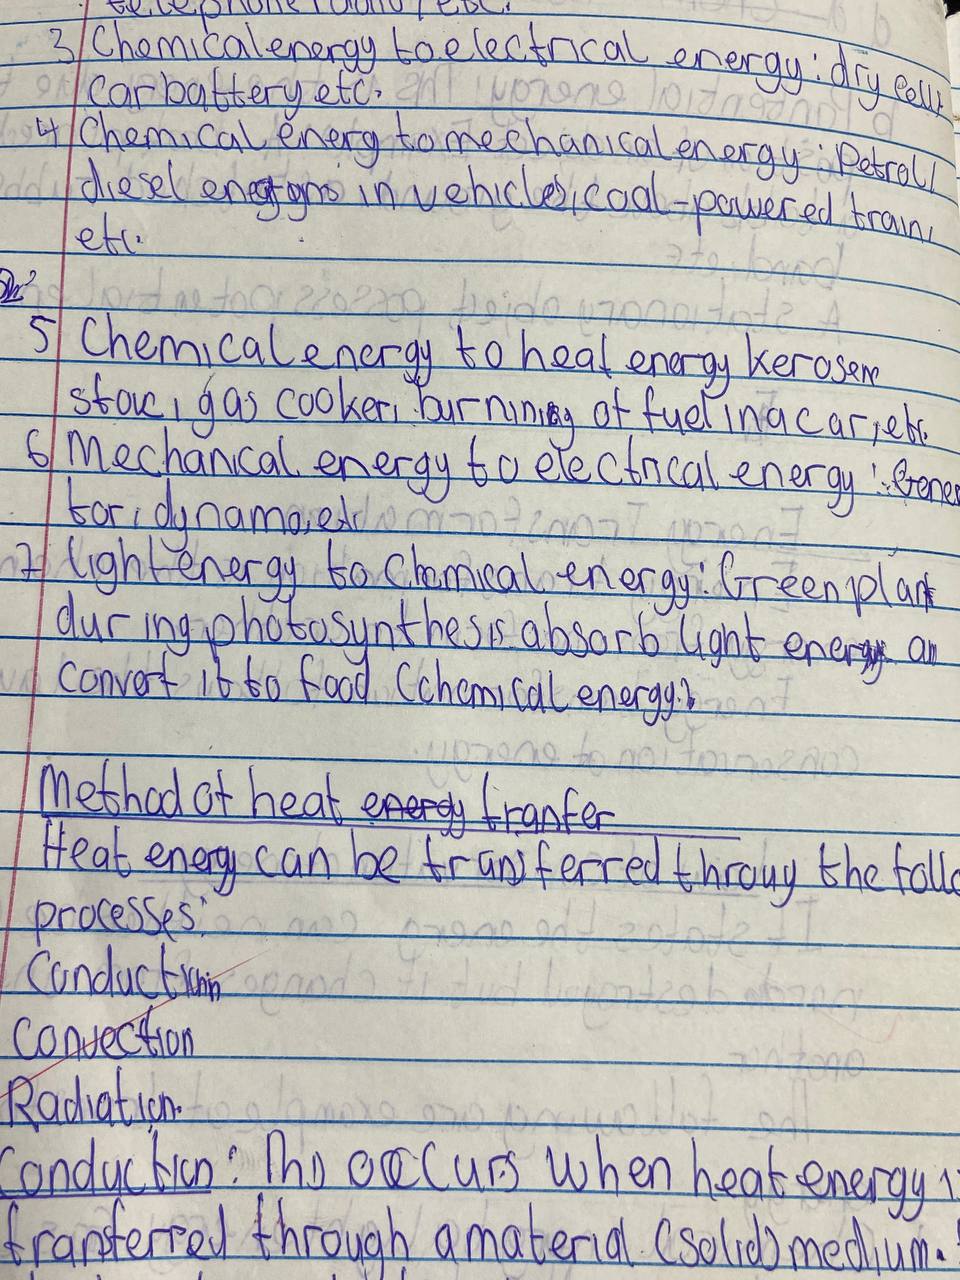 telephone radio, etc.
3 Chemical energy to electrical energy: dry cell,
car battery etc.
4 Chemical energ to mechanical energy: Petrol/
diesel in vehicles, coal-powered train,
etc.
5 Chemical energy to heat energy kerosene
stove, gas cooker, burning of fuel in a car, etc.
6 Mechanical energy to electrical energy: Gene
tor, dynamo, etc
7 light energy to Chemical energy: Green plant
during photosynthesis absorb light energy an
convert it to food (chemical energy.)
Method of heat energy tranfer
Heat energy can be transferred throuy the follo
processes:
Conduction
Convection
Radiation.
Conduction: This occurs when heat energy is
transferred through a material (solid) medium.